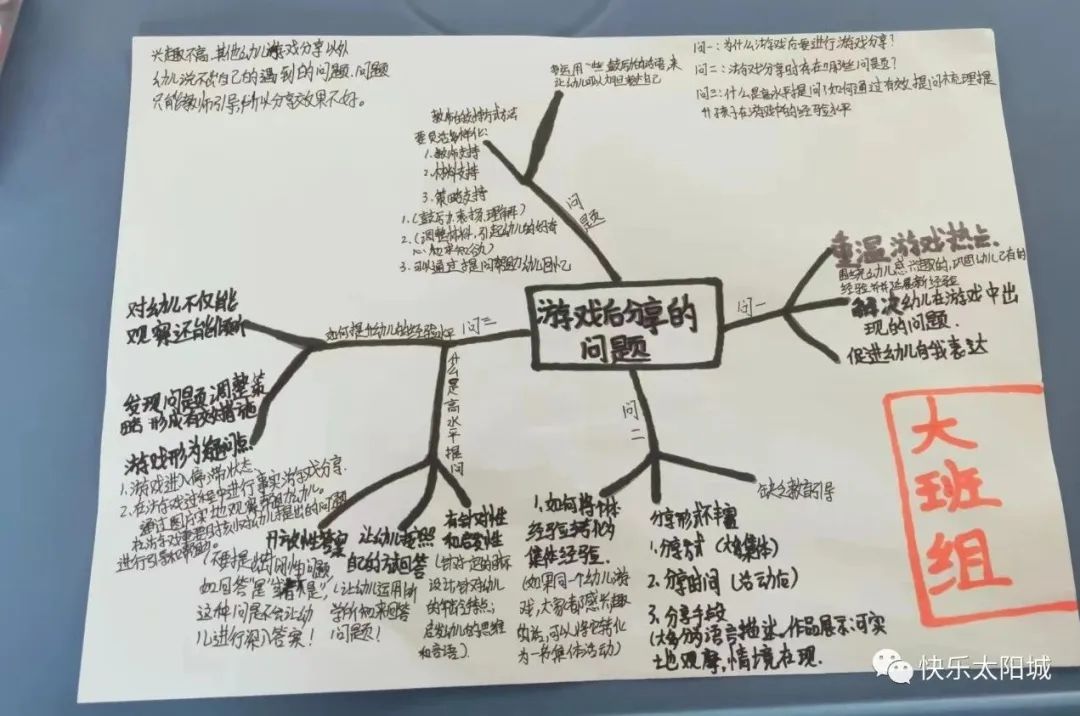 兴趣不高,其他幼儿游戏分享以外
幼儿说不出自己的遇到的问题,问题
只能教师引导所以分享效果不好。
问一:为什么活游戏后要进行游戏分享?
问二:活游戏分享时存在哪些问题?
问三:什么是高水平提问?如何通过有效提问梳理提
升孩子在游戏中的经验水平
多运用一些鼓励性的话语,来
让幼儿可以大胆表达自己
教师的支持方式方法
要灵活多样化:
1.教师支持
2.材料支持
3.策略支持
1.(鼓励、表扬、理解)
2.(调整材料,引起幼儿的好奇
心和求知欲)
3.可以通过提问帮助幼儿回忆
问题
游戏后分享的
问题
问一
重温游戏热点.
围绕幼儿感兴趣的,巩固幼儿已有的
经验并拓展新经验
解决幼儿在游戏中出
现的问题.
促进幼儿自我表达
问三
如何提升幼儿的经验水平
对幼儿不仅能
观察还能倾听
发现问题调整策
略形成有效措施
游戏形为疑问点.
1.游戏进入停滞状态
什么是高水平提问
开放性答案
(不要提出封闭性问题
如回答"是"或者"不是"
这种问题不会让幼
儿进行深入答案!
让幼儿按照
自己的方试回答
(让幼儿运用所
学的知来回答
问题!)
有针对性
和启发性
(针对一定的目标
设计针对幼儿
的年龄特点;
启发幼儿的思维
和言语)
问二
1.如何将个体
经验转化为
集体经验.
(如果同一个幼儿游
戏,大家都感兴趣
的话,可以将它转化
为一节集体活动)
分享形式不丰富
1.分享方式(大多集体)
2.分享时间(活动后)
3.分享手段
(大多分为语言描述、作品展示可实
地观摩,情境在现.
缺乏教育引导
大
班
组
快乐太阳城